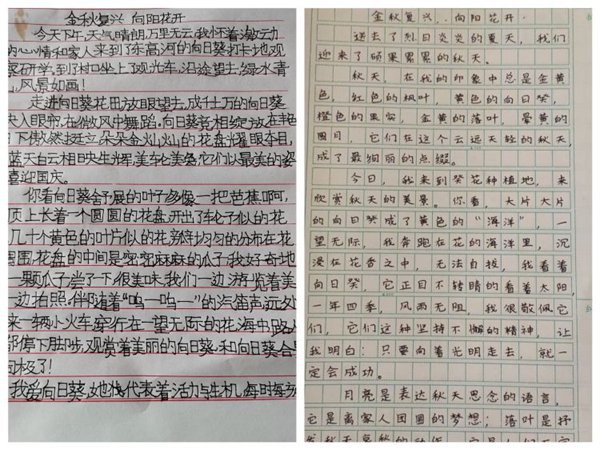 金秋复兴 向阳花开
今天下午,天气晴朗,万里无云,我怀着激动
的心情和家人来到东高河的向日葵打卡地观
察研学,到了村口坐上了观光车,沿途望去,绿水青
,风景如画!
走进向日葵花田放眼望去,成千上万的向日葵
央入眼帘,在微风中舞蹈,向日葵竞相绽放在艳
日下傲然挺立朵朵金火山灿的花盘耀眼夺目,
蓝天白云相映生辉,美轮美奂,它们以最美的姿
喜迎国庆。
你看向日葵舒展的叶子多像一把芭蕉啊,
顶上长着一个圆圆的花盘,开出了车轮子似的花
几十个黄色的叶片似的花瓣均匀的分布在花
围,花盘的中间是密密麻麻的瓜子,我好奇地
一颗瓜子尝了下很美味,我们一边游览着美
一边拍照,伴随着“呜一呜一”的汽笛声,远处
来一辆小火车穿行在一望无际的花海中,路人
都停下脚步,观赏着美丽的向日葵,和向日葵合影
极了!
我爱向日葵,她代表着活力与生机,每时每
金秋复兴..向阳花开·
逝去了烈日炎炎的夏天,我们
迎来了硕果累累的秋天。
秋天,在我的印象中总是金黄
色,红色的枫叶,黄色的向日葵,
橙色的果实,金黄的落叶,晕黄的
圆月,它们在这个云远天轻的秋天,
成了最绚丽的点缀。
今日,我来到葵花种植地,来
欣赏秋天的美景。你看,大片大片
的向日葵成了黄色的“海洋”,一
望无际,我奔跑在花的海洋里,沉
浸在花香之中,无法自拔,我看着
向日葵,它正目不转睛的看着太阳,
一年四季,风雨无阻,我很敬佩它
们,它们这种坚持不懈的精神,让
我明白:只要向着光明走去,就一
定会成功。
月亮是表达秋天思念的语言,
它是离家人团圆的梦想;落叶是抒